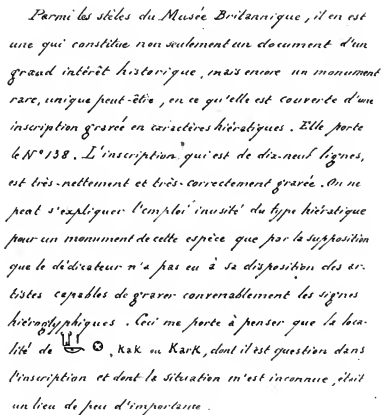 Parmi les stèles du Musée Britannique, il en est
une qui constitue non seulement un document d'un
grand intérêt historique, mais encore un monument
rare, unique peut-être, en ce qu'elle est couverte d'une
inscription gravée en caractères hiératiques. Elle porte
le N° 138. L'inscription qui est de dix-neuf lignes,
est très-nettement et très-correctement gravée. On ne
peut s'expliquer l'emploi inusité du type hiératique
pour un monument de cette espèce que par la supposition
que le dédicateur n'a pas eu à sa disposition des ar-
tistes capables de graver convenablement les signes
hiéroglyphiques. Ceci me porte à penser que la loca-
lité de , Kak ou KarK, dont il est question dans
l'inscription et dont la situation m'est inconnue, était
un lieu de peu d'importance.